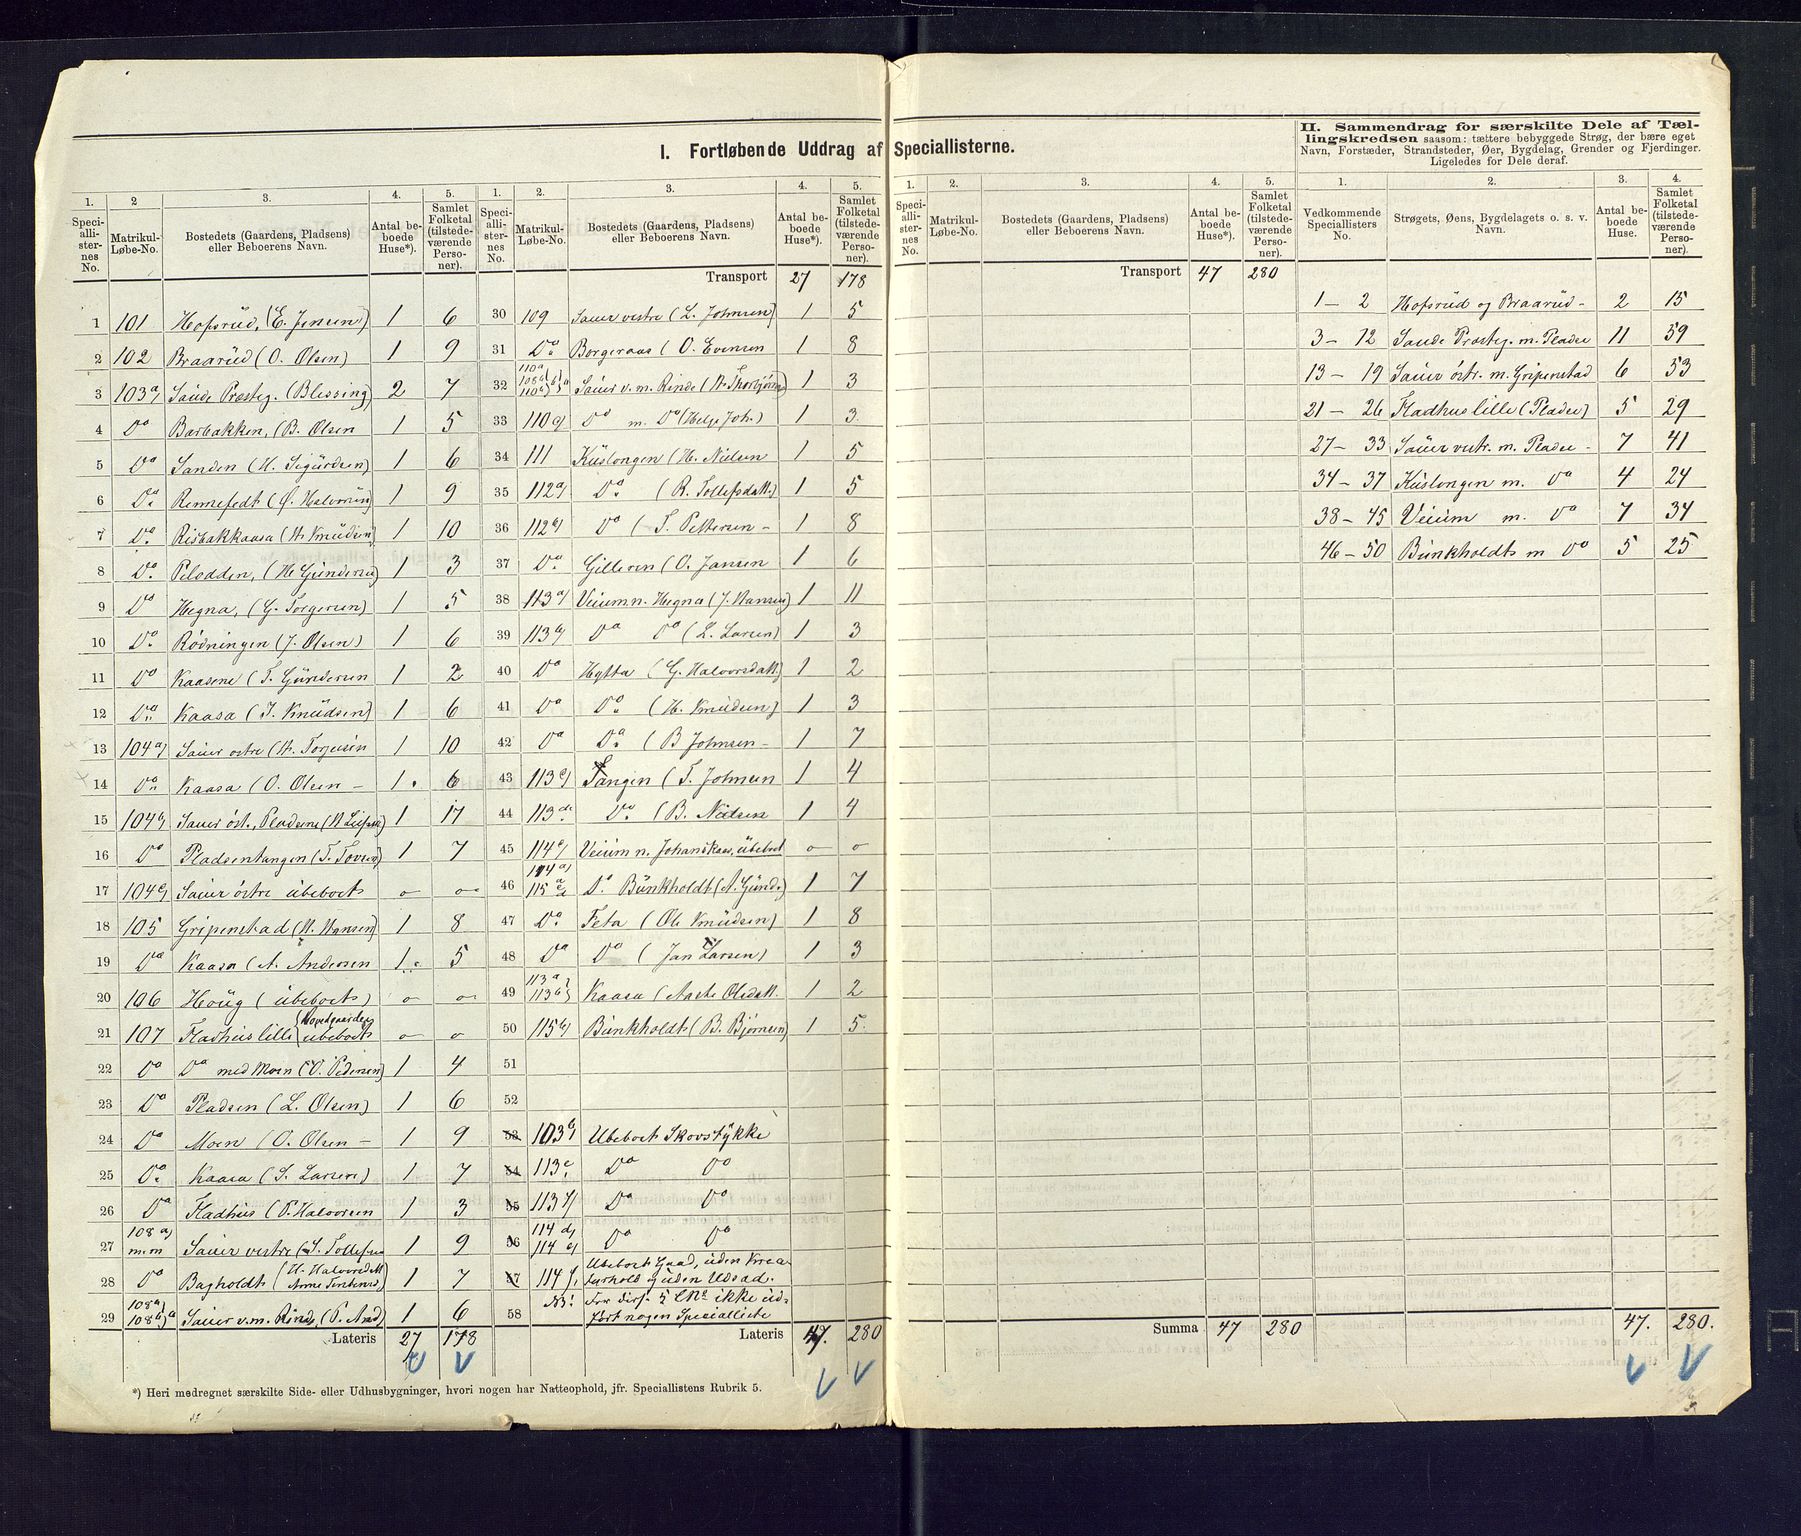 I. Fortløbende Uddrag af Speciallisterne.
1. 2 3. 4. 5.
Speciallisternes No. Matrikul-Løbe-No. Bostedets (Gaardens, Pladsens) eller Beboerens Navn. Antal beboede Huse*). Samlet Folketal (tilstedeværende Personer).
1 101 Hofsrud, (E. Jensen) 1 6
2 102 Braarud (O. Olsen) 1 9
3 103a) Saude Præsteg. (Blessing) 2 7
4 Do Barbakken, (B. Olsen 1 5
5 Do Sanden (H. Sigurdsen) 1 6
6 Do Rennefedt (G. Halvorsen) 1 9
7 Do Risbakkaasa (H. Knudsen) 1 10
8 Do Pelodden, (H. Gundersen) 1 3
9 Do Hegna, (G. Torgersen) 1 5
10 Do Rødningen (J. Olsen) 1 6
11 Do Kaasene (T. Gundersen 1 2
12 Do Kaasa (T. Knudsen) 1 6
13 104a) Sauer østre (H. Torjusen 1 10
14 Do Kaasa (O. Olsen – 1 6
15 104b) Sauer øst., Pladsene 1 17
16 Do Pladsentangen (T. Tovsen) 1 7
17 104c) Sauer østre ubeboet o o
18 105 Gripenstad (H. Hansen) 1 8
19 Do Kaasa (A. Andersen 1 5
20 106 Houg (ubeboet) o o
21 107 Fladhus lille (Hovedgaarden ubeboet o o
22 Do Do med Moen (O. Pedersen) 1 4
23 Do Pladsen (L. Olsen) 1 6
24 Do Moen (O. Olsen – 1 9
25 Do Kaasa (S. Larsen) 1 7
26 Do Fladhus (P. Halvorsen 1 3
27 108a) m.m Sauer vestre (S. Tollefsen 1 9
28 Do Bagholdt (H. Halvorsd 1 7
29 108a) 108b) Sauer v. m. Rinde, (P. And) 1 6
Lateris 27 178
*) Heri medregnet særskilte Side- eller Udhusbygninger, hvori nogen har Natteophold, jfr. Speciallistens Rubrik 5.
1. 2. 3. 4. 5.
Speciallisternes No. Matrikul-Løbe-No. Bostedets (Gaardens, Pladsens) eller Beboerens Navn. Antal beboede Huse*). Samlet Folketal (tilstedeværende Personer).
Transport 27 178
30 109 Sauer vestre (L. Johnsen) 1 5
31 Do Borgeraas (O. Evensen 1 8
32 110a 108b) 110b) Sauer v. m. Rinde 1 3
33 110c) Do m. Do (Helge Joh.) 1 3
34 111 Kuslongen (H. Nielsen 1 5
35 112a) Do (R. Tollefsdatt.) 1 5
36 112b) Do (T. Pettersen – 1 8
37 Do Gilleren (O. Jansen 1 6
38 113a) Veium n. Hegna (J. Hansen) 1 11
39 113b) Do Do (L. Larsen) 1 3
40 Do Hytta (G. Halvorsdatt.) 1 2
41 Do Do (H. Knudsen) 1 3
42 Do Do (B Johnsen – 1 7
43 113c) Tangen (T. Johnsen 1 4
44 113d. Do (B. Nielsen 1 4
45 114a) Veium n. Johanskaas, ubeboet o o
46 114a) 115a Do Bunkholdt (A. Gund.) 1 7
47 Do Feta (Ole Knudsen) 1 8
48 Do Do (Jan Larsen) 1 3
49 113a 113b) Kaasa (Aaste Olsdatt. 1 2
50 115b) Bunkholdt (B. Bjørnsen) 1 5
51
52
53 103b) Ubeboet Skovstykke
54 113e Do Do
55 113f) Do Do
56 114d) 114e) Do Do
57 114f. Ubeboet Gaard, uden Kreaturhold & uden Udsæd.
58 NB! For disse 5 LNo ikke udført nogen Specialliste
Lateris 47. 280
1. 2. 3. 4. 5.
Speciallisternes No. Matrikul-Løbe-No. Bostedets (Gaardens, Pladsens) eller Beboerens Navn. Antal beboede Huse*). Samlet Folketal (tilstedeværende Personer).
Transport 47 280
Summa 47 280
II. Sammendrag for særskilte Dele af Tællingskredsen saasom: tættere bebyggede Strøg, der bære eget
Navn, Forstæder, Strandsteder, Øer, Bygdelag, Grender og Fjerdinger.
Ligeledes for Dele deraf.
1. 2. 3. 4.
Vedkommende Speciallisters No. Strøgets, Øens, Bygdelagets o. s. v. Navn. Antal beboede Huse. Samlet Folketal (tilstedeværende Personer).
1 – 2 Hofsrud og Braarud – 2 15
3 – 12 Saude Præsteg. m. Pladse 11 59
13 – 19 Sauer østr. m. Gripenstad 6 53
21 – 26 Fladhus lille (Pladse) 5 29
27 – 33 Sauer vestr. m. Pladse – 7 41
34 – 37 Kuslongen m. Do 4 24
38 – 45 Veium m. Do 7 34
46 – 50 Bunkholdt m Do 5 25
47. 280.